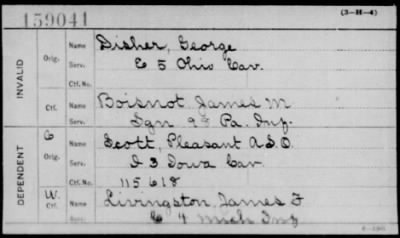 159041
(3-H-4)
INVALID
Orig.
Name Disher, George
Serv. C 5 Ohio Cav.
Ctf. No.
Ctf.
Name Boisnot, James M
Sgn 98 Pa. Inf.
DEPENDENT
C
Orig.
Name Scott, Pleasant A.S.O.
Serv. I 3 Iowa Cav.
Ctf. No. 115618
W.
Ctf.
Name Livingston, James F
C 4 Mich Inf